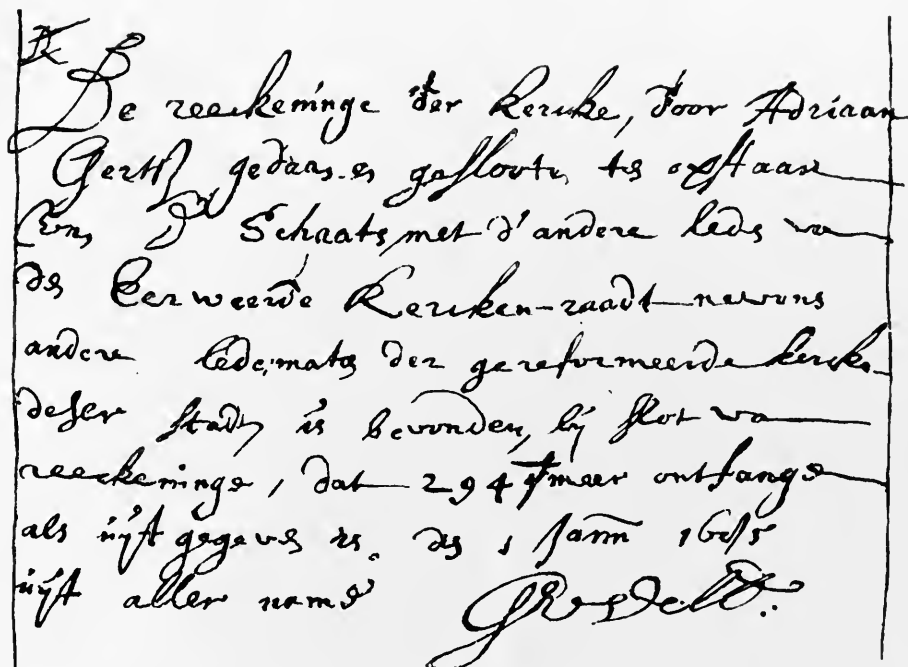 De reeckeninge der kercke, door Adriaan
Gertß gedaan en geslooten ten opstaan
D Schaats, met d'andere leden van
den Eerweerde Kercken-raadt nevens
andere ledematen der gereformeerde kercke
deser stadt, is bevonden, bij slot van
reeckeninge, dat 294 meer ontfangen
als uijtgegeven is. den 1 Jann
uijt aller name